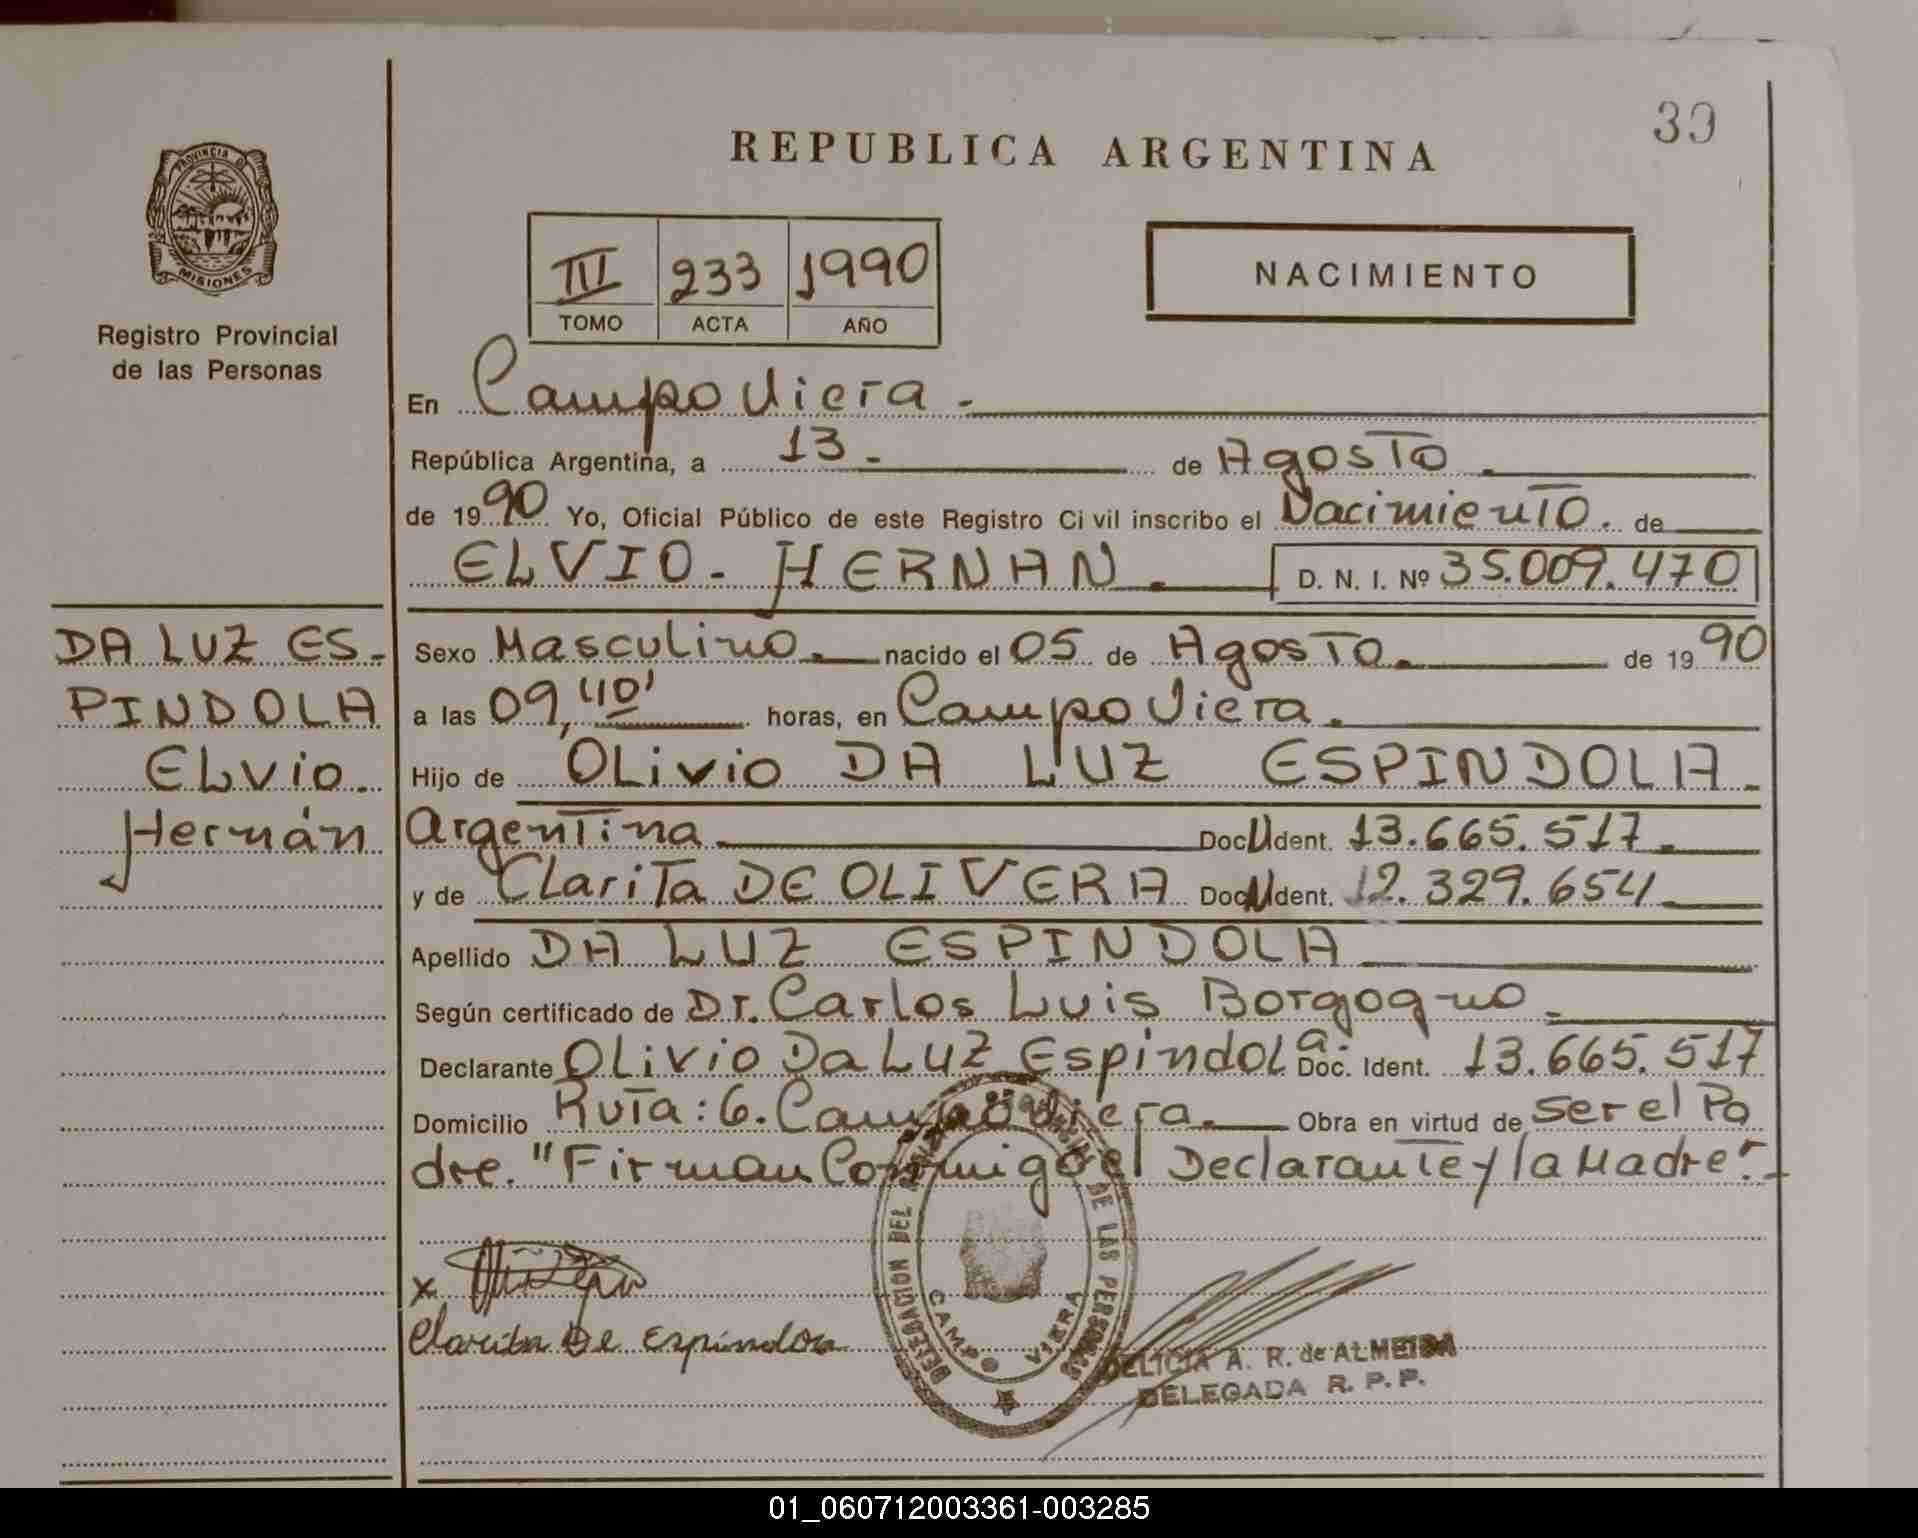 39
REPUBLICA ARGENTINA
PROVINCIA DE
MISIONES
Registro Provincial
de las Personas
III 233 1990
TOMO ACTA AÑO
NACIMIENTO
En Campo Viera.
República Argentina, a 13. de Agosto.
de 1990 Yo, Oficial Público de este Registro Civil inscribo el Nacimiento. de
ELVIO. HERNAN. D. N. I. Nº 35.009.470
DA LUZ ES-
PINDOLA
ELvio.
Hernán
Sexo Masculino. nacido el 05 de Agosto. de 1990
a las 09,40' horas, en Campo Viera.
Hijo de OLivio DA LUZ ESPINDOLA.
Argentina. Doc. Ident. 13.665.517.
y de CLariTa DE OLIVERA Doc. Ident. 12.329.654.
Apellido DA LUZ ESPINDOLA
Según certificado de Dr. Carlos Luis Borgogno.
Declarante OLivio Da Luz Espindola. Doc. Ident. 13.665.517
Domicilio Ruta: 6. Campo Viera. Obra en virtud de ser el Pa
dre. "Firman Conmigo el Declarante y la Madre".-
x
Clarita De Espindola
DELEGACION DEL REGISTRO PROVINCIAL DE LAS PERSONAS
CAMPO VIERA
DELICIA A. R. de ALMEIDA
DELEGADA R. P. P.
01_060712003361-003285